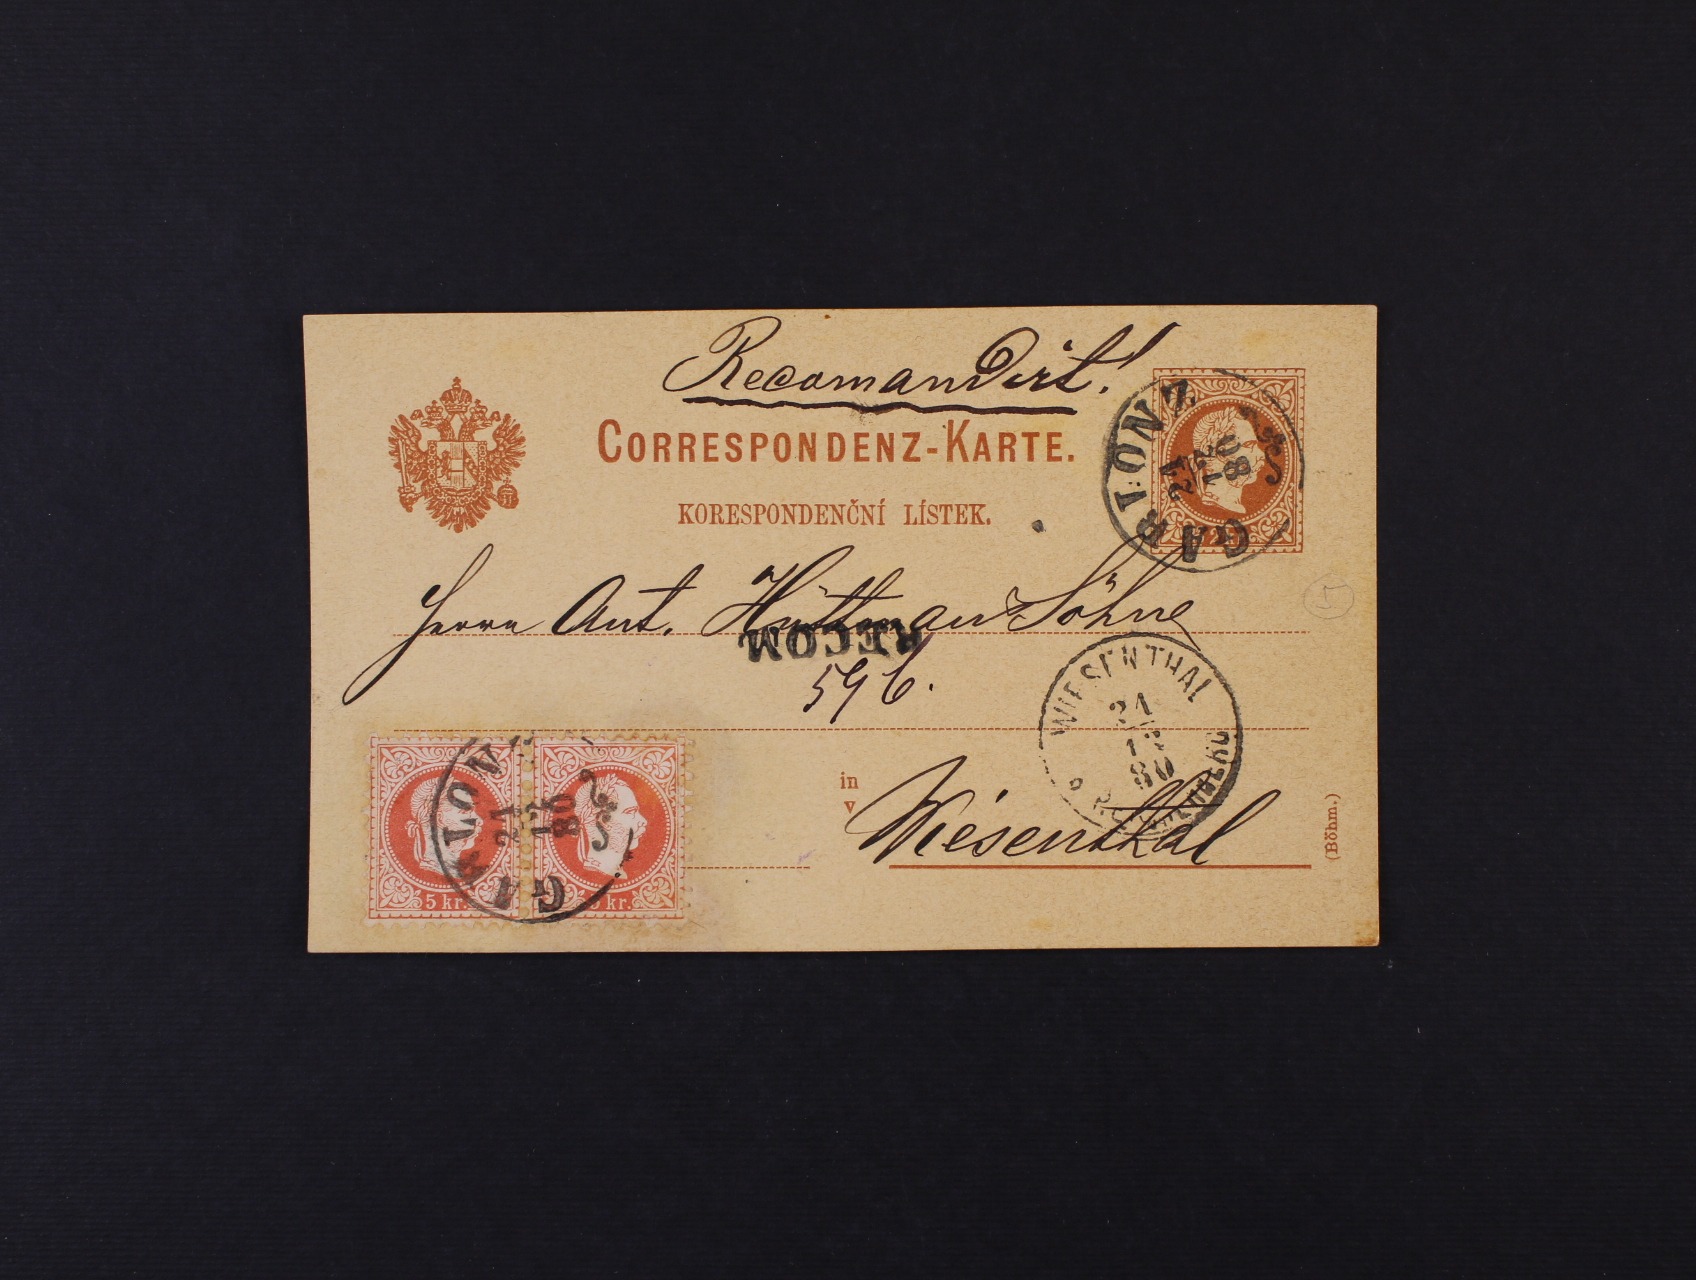 Recomandirt!
CORRESPONDENZ-KARTE.
KORESPONDENČNÍ LÍSTEK.
GABLONZ
21
12
80
Herrn Ant. Hüttman Söhne
RECOM
596.
WIESENTHAL
21
12
80
in
v
Wiesenthal
GABLONZ
21
12
80
5 kr.
5 kr.
(Böhm.)